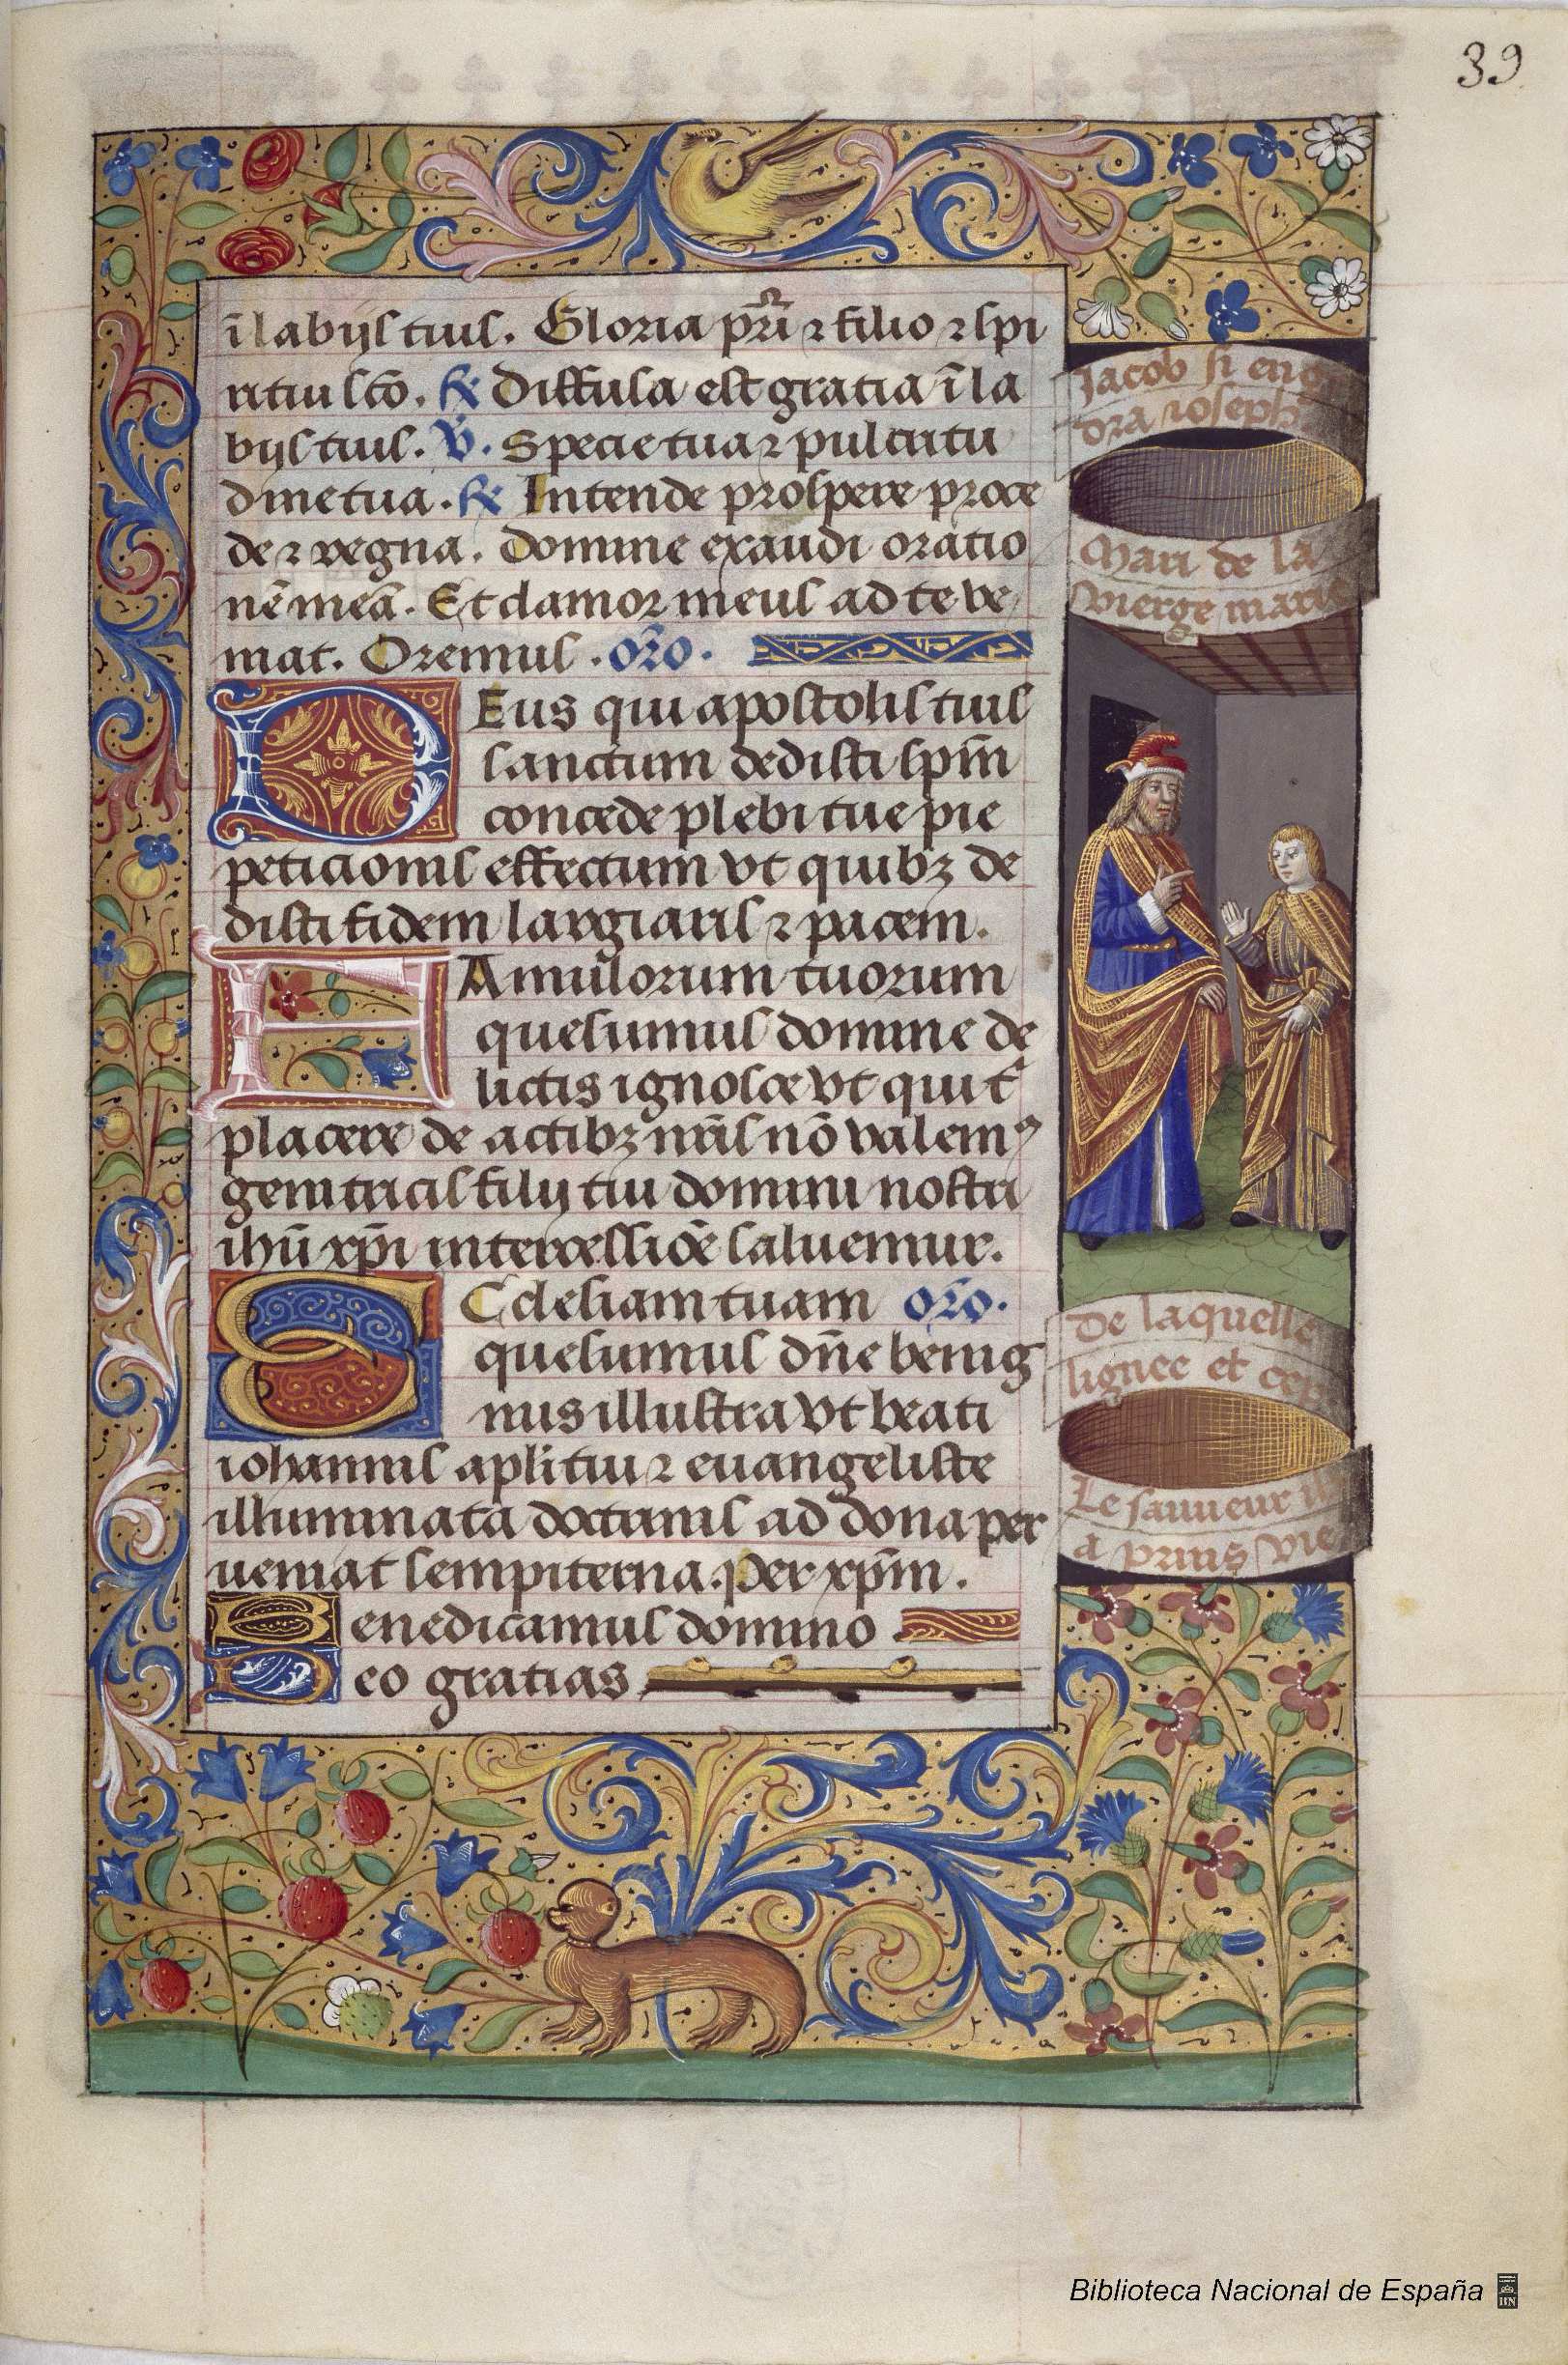 39
ī labijs tuis. Gloria pr̄i ⁊ filio ⁊ spi
ritui sc̄o. ℟ Diffusa est gratia ī la
bijs tuis. ℣. Specie tua ⁊ pulcritu
dine tua. ℟ Intende prospere proce
de ⁊ regna. Domine exaudi oratio
nē meā. Et clamor meus ad te ve
niat. Oremus. oro.
Deus qui apostolis tuis
sanctum dedisti sp̄m
concede plebi tue pie
peticionis effectum vt quibꝫ de
disti fidem largiaris ⁊ pacem.
Famulorum tuorum
quesumus domine de
lictis ignosce vt qui t
placere de actibꝫ nr̄is nō valemꝰ
genitricis filij tui domini nostri
ihū xp̄i intercessiōe saluemur.
Ecclesiam tuam oro.
quesumus dn̄e benig
nus illustra vt beati
iohannis apl̄i tui ⁊ euangeliste
illuminata doctrinis ad dona per
ueniat sempiterna. Per xp̄m.
Benedicamus domino.
Deo gratias
Jacob si eng
dra ioseph
Mari de la
vierge marie
De laquelle
lignee et cep
Le sauueur
a prins vie
Biblioteca Nacional de España